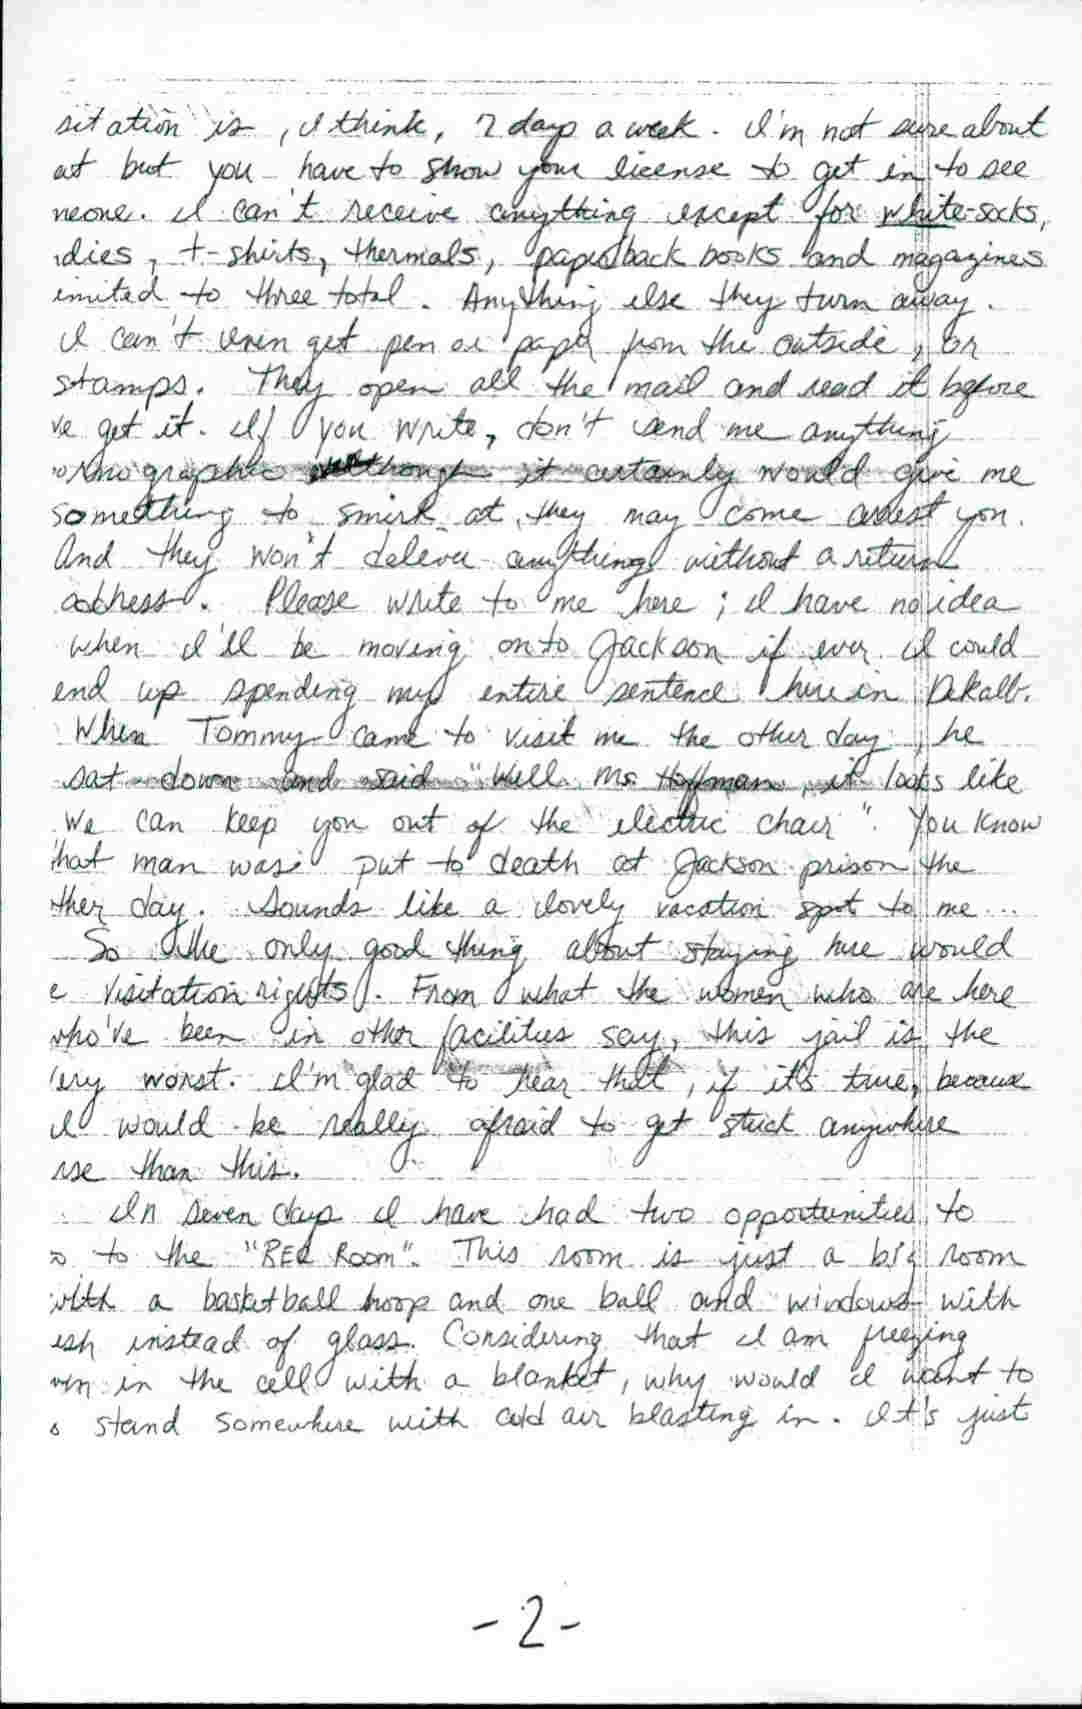 sitation is, I think, 7 days a week. I'm not sure about
at but you have to show your license to get in to see
neone. I can't receive anything except for white-socks,
dies, t-shirts, thermals, paperback books and magazines
imited to three total. Anything else they turn away.
I can't even get pen or paper from the outside, or
stamps. They open all the mail and read it before
ve get it. If you write, don't send me anything
ornographic although it certainly would give me
something to smirk at, they may come arrest you.
And they won't deliver anything without a return
address. Please write to me here; I have no idea
when I'll be moving onto Jackson if ever. I could
end up spending my entire sentence here in Dekalb.
When Tommy came to visit me the other day, he
sat down and said "Well Ms. Hoffman, it looks like
we can keep you out of the electric chair". You know
that man was put to death at Jackson prison the
ther day. Sounds like a lovely vacation spot to me...
So the only good thing about staying here would
e visitation rights. From what the women who are here
who've been in other facilities say, this jail is the
very worst. I'm glad to hear that, if it's true, because
I would be really afraid to get stuck anywhere
rse than this.
In seven days I have had two opportunities to
o to the "REC Room". This room is just a big room
with a basketball hoop and one ball and windows with
esh instead of glass. Considering that I am freezing
ven in the cell with a blanket, why would I want to
o stand somewhere with cold air blasting in. It's just
-2-